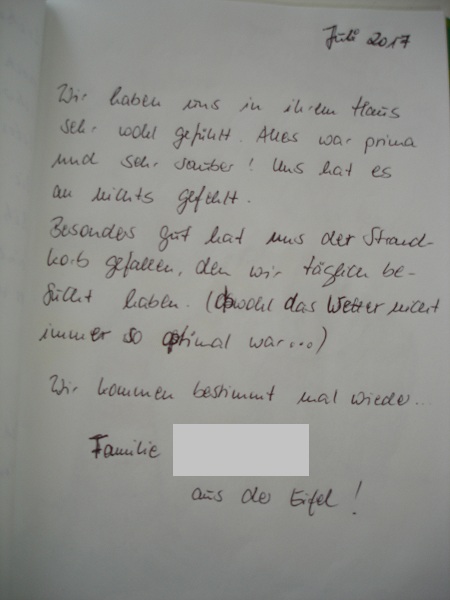 Juli 2017
Wir haben uns in ihrem Haus
sehr wohl gefühlt. Alles war prima
und sehr sauber! Uns hat es
an nichts gefehlt.
Besonders gut hat uns der Strand-
korb gefallen, den wir täglich be-
sucht haben. (Obwohl das Wetter nicht
immer so optimal war...)
Wir kommen bestimmt mal wieder...
Familie
aus der Eifel!